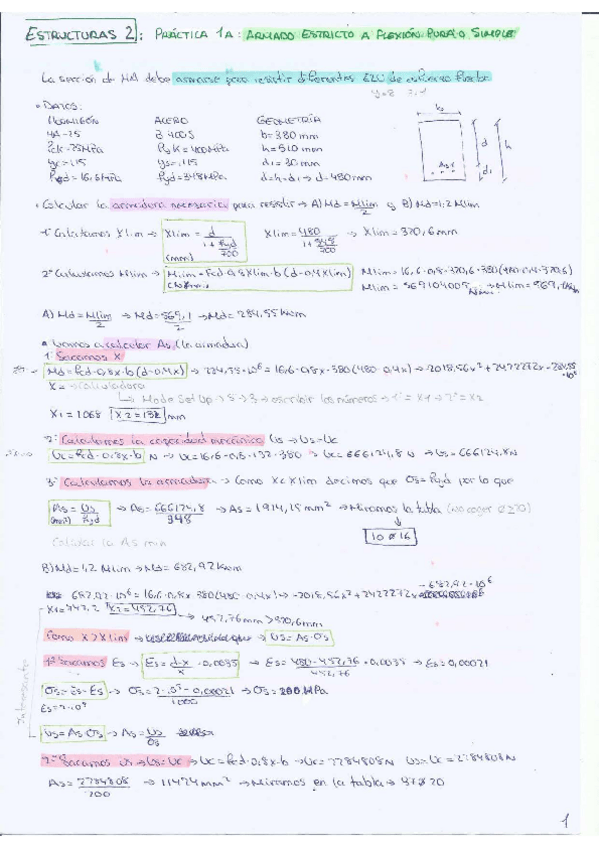 ESTRUCTURAS 2: PRÁCTICA 1A: ARMADO ESTRICTO A FLEXIÓN PURA O SIMPLE
La sección de HA debe armarse para resistir diferentes ELU de esfuerzo flector
• DATOS:
HORMIGÓN ACERO GEOMETRÍA
HA-25 B 400 S b=380 mm
Fck=25MPa Fyk=400MPa h=510 mm
γc=1,5 γs=1,15 d1=30 mm
Fcd=16,6MPa Fyd=348MPa d=h-d1→d=480mm
d h
As1 d1
• Calcular la armadura necesaria para resistir → A) Md=Mlim/2 y B) Md=1,2 Mlim
1º Calculamos Xlim → Xlim = d/(1+Fyd/700) (mm) Xlim = 480/(1+348/700) → Xlim = 320,6mm
2º Calculamos Mlim → Mlim=Fcd·0,8Xlim·b(d-0,4Xlim) Mlim=16,6·0,8·320,6·380(480-0,4·320,6)
Mlim = 569104005 → Mlim=569,1
A) Md=Mlim/2 → Md=569,1/2 → Md=284,55 kNm
• Vamos a calcular As (la armadura)
1º Sacamos X
Md=Fcd·0,8x·b(d-0,4x) → ·10⁶=16,6·0,8x·380(480-0,4x) → -2018,56x²+2422272x-284,55·10⁶
X= → Calculadora
→ Mode Set Up → 5 → 3 → escribir los números → 1º = X1 → 2º = X2
X1=1068 X2=132 mm
2º Calculamos la capacidad mecánica Us → Us=Uc
Uc=Fcd·0,8x·b N → Uc=16,6·0,8·132·380 → Uc=666124,8 N → Us=666124,8N
3º Calculamos la armadura → Como X<Xlim decimos que σs=Fyd por lo que
As=Us/Fyd (mm²) → As=666124,8/348 → As=1914,15 mm² → Miramos la tabla (no coger Ø20)
10 Ø 16
Calcular la As min
B) Md=1,2 Mlim → Md=682,92 kNm
682,92·10⁶=16,6·0,8x·380(480-0,4x) → -2018,56x²+2422272x-682,92·10⁶
X1=747,2 X2=452,76
→ 452,76mm>320,6mm
Como X>Xlim → → Us=As·σs
1º Sacamos Es → Es=d-x/x·0,0035 → Es=480-452,76/452,76·0,0035 → Es=0,00021
σs=Es·Es → σs=2·10⁵·0,00021 → σs=200 MPa
Es=2·10⁵
Us=As·σs → As=Us/σs
2º Sacamos Us → Us=Uc → Uc=Fcd·0,8x·b → Uc=2284808N Us=Uc=2284808N
As=2284808/200 → 11424mm² → Miramos en la tabla → 37Ø20
1